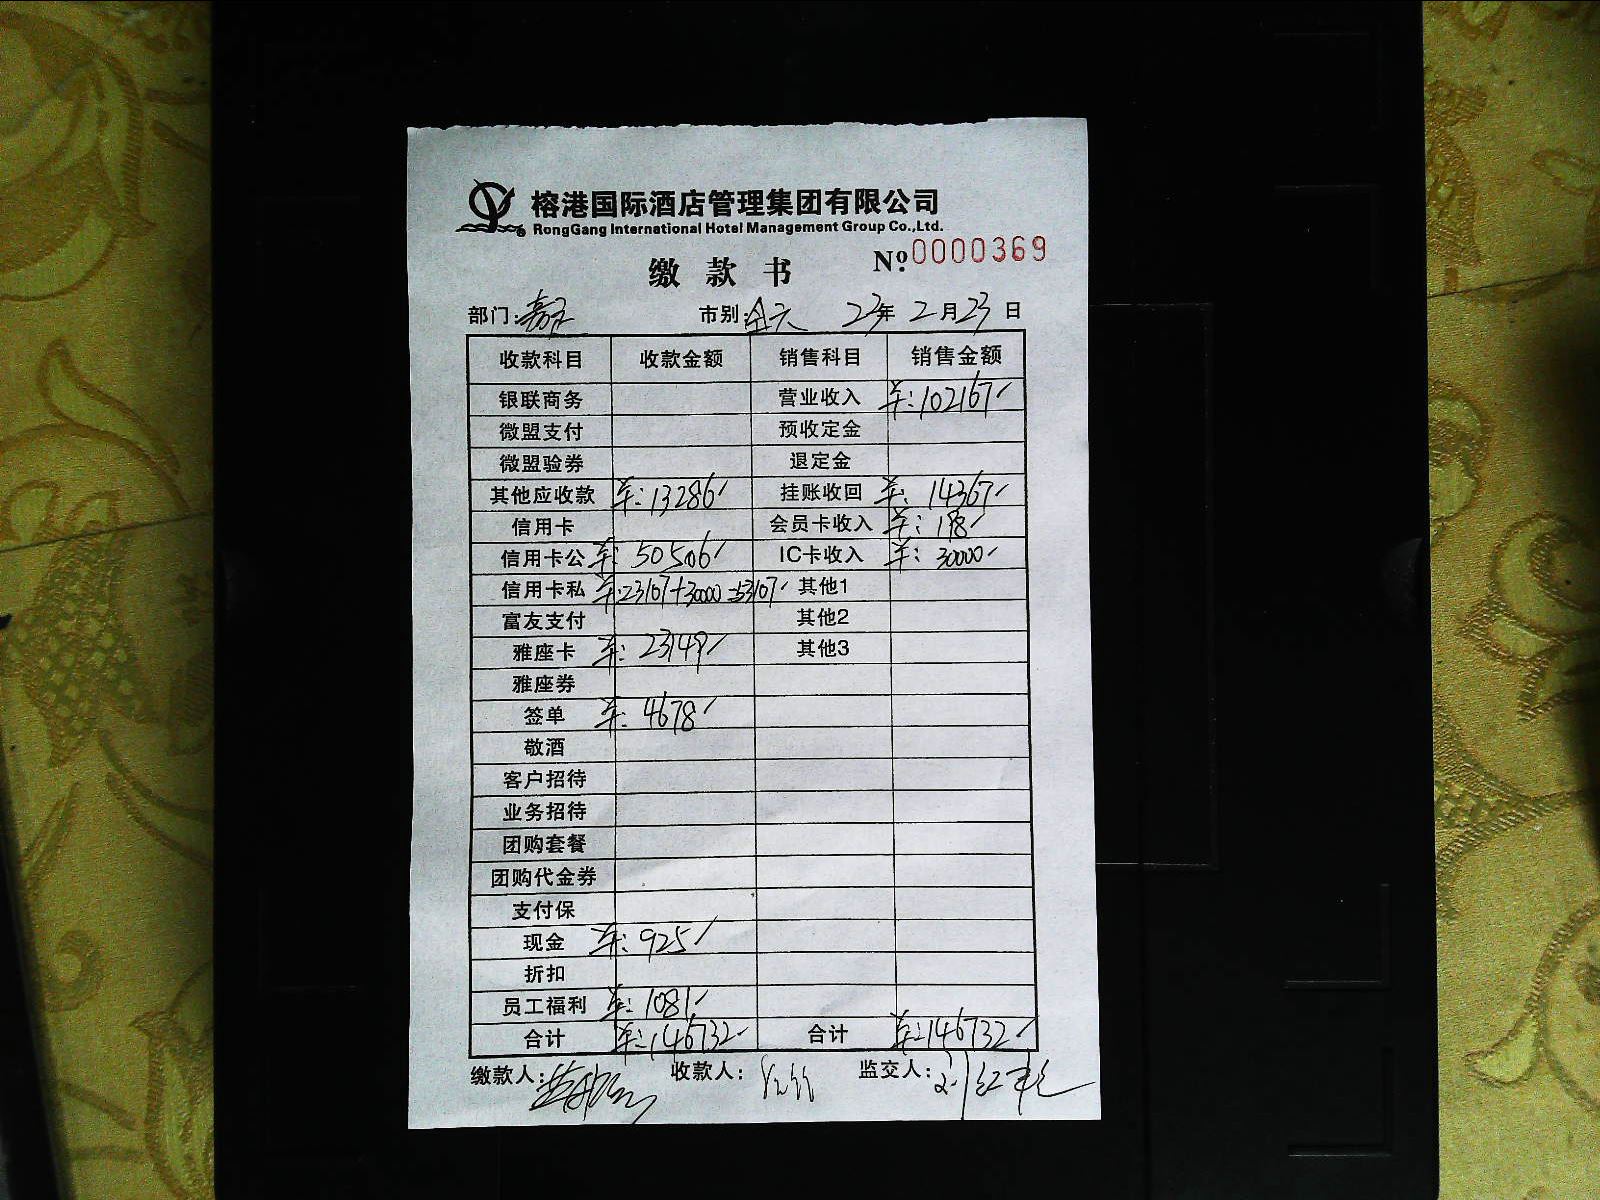 榕港国际酒店管理集团有限公司
RongGang International Hotel Management Group Co.,Ltd.
缴款书 Nº 0000369
部门: 市别:全天 23年2月23日
收款科目 收款金额 销售科目 销售金额
银联商务 营业收入 车:102167
微盟支付 预收定金
微盟验券 退定金
其他应收款 车:13286 挂账收回 车:14367
信用卡 会员卡收入 车:198
信用卡公 车:50506 IC卡收入 车:30000
信用卡私 车:23107+30000=53107 其他1
富友支付 其他2
雅座卡 车:23149 其他3
雅座券
签单 车:4678
敬酒
客户招待
业务招待
团购套餐
团购代金券
支付保
现金 车:925
折扣
员工福利 车:1081
合计 车:146732 合计 车:146732
缴款人: 收款人: 监交人: